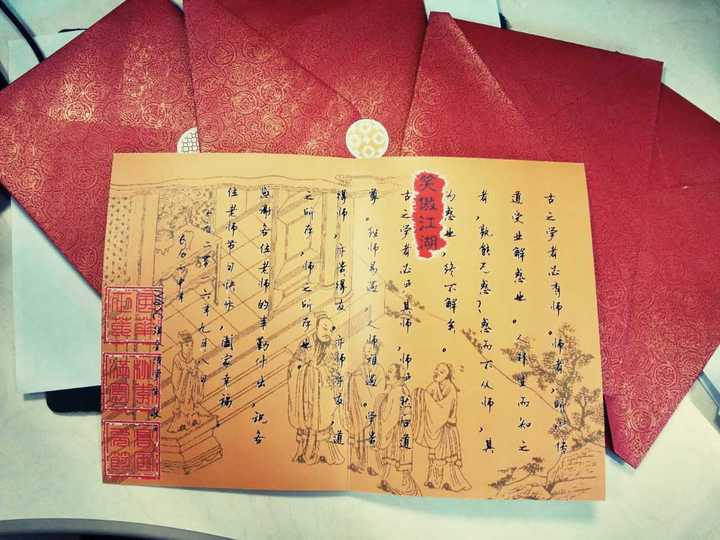 古之学者必有师。师者，所以传
道受业解惑也。人非生而知之
者，孰能无惑？惑而不从师，其
为惑也，终不解矣。
笑傲江湖
古之学者必严其师，师严然后道
尊。经师易遇，人师难遇。学贵
得师，亦贵得友。亦师亦友，道
之所存，师之所存也。
感谢各位老师的辛勤付出，祝各
位老师节日快乐，阖家幸福
六年九月八日